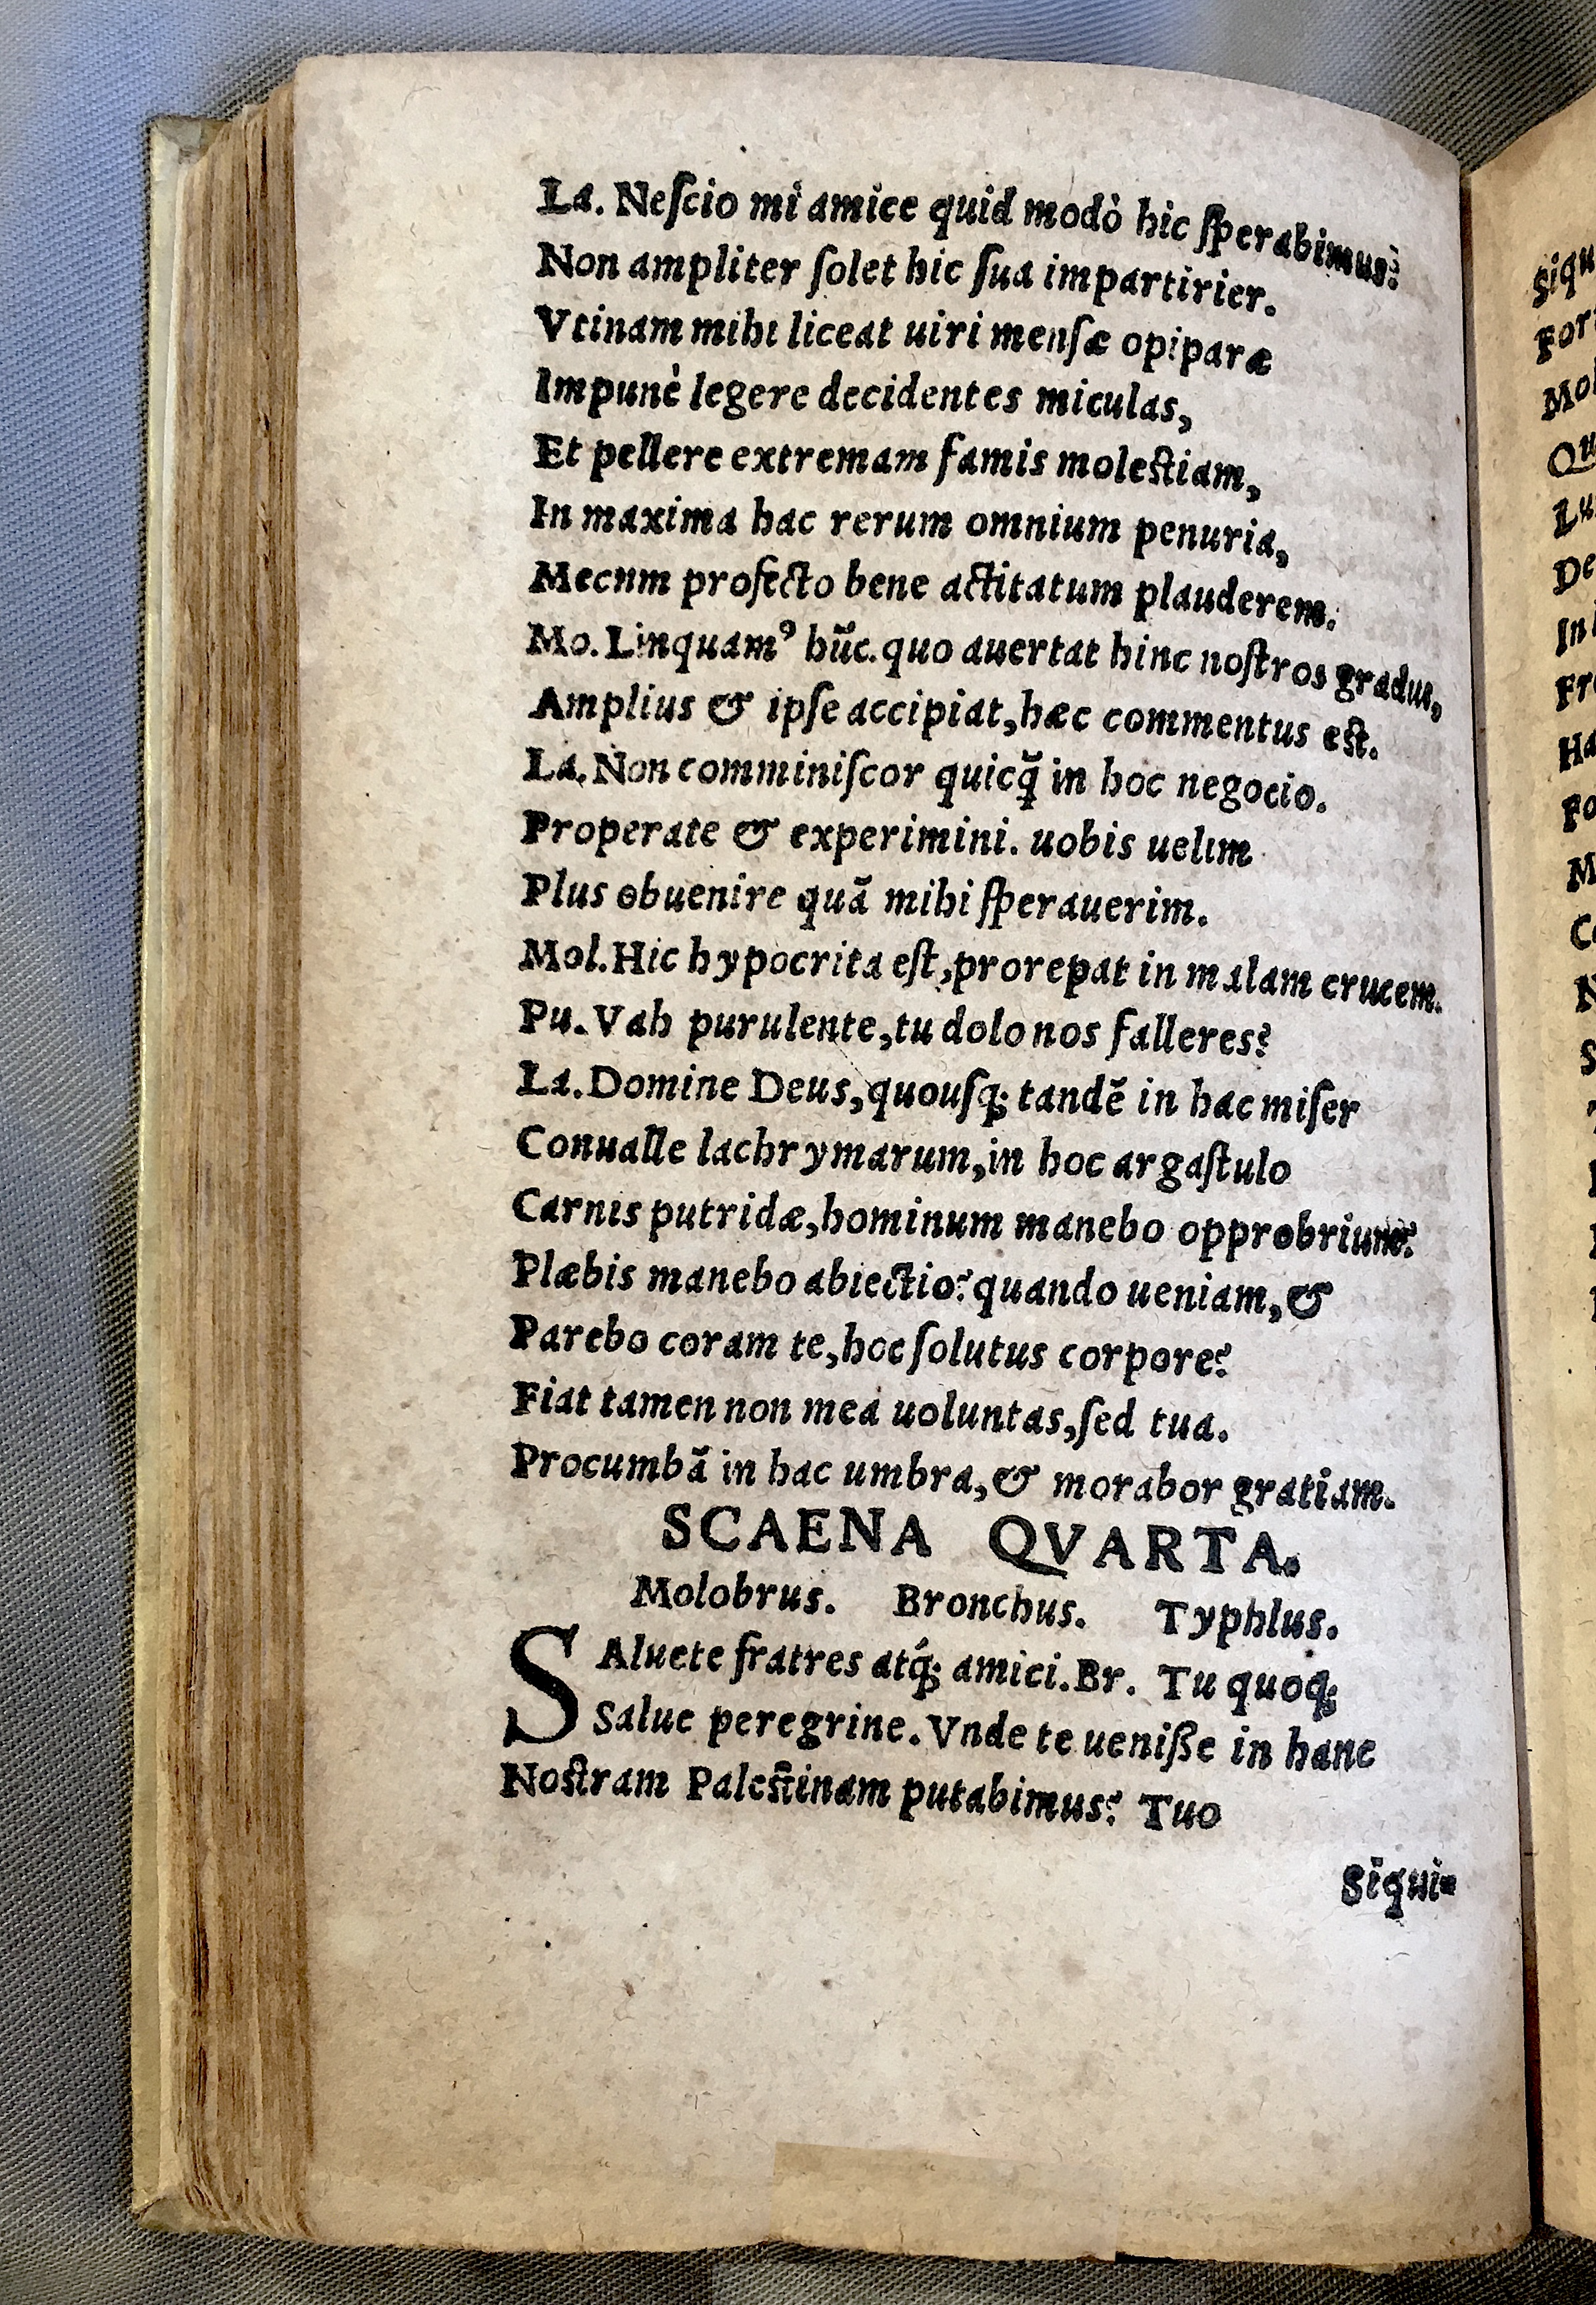 La. Neſcio mi amice quid modò hic ſperabimus?
Non ampliter ſolet hic ſua impartirier.
Vtinam mihi liceat uiri menſæ opiparæ
Impunè legere decidentes miculas,
Et pellere extremam famis moleſtiam,
In maxima hac rerum omnium penuria,
Mecnm profecto bene actitatum plauderem.
Mo. Linquamꝰ hũc. quo auertat hinc noſtros gradus,
Amplius & ipſe accipiat, hæc commentus eſt.
La. Non comminiſcor quicq̃ in hoc negocio.
Properate & experimini. uobis uelim
Plus obuenire quã mihi ſperauerim.
Mol. Hic hypocrita eſt, prorepat in malam crucem.
Pu. Vah purulente, tu dolo nos falleres?
La. Domine Deus, quouſq; tandẽ in hac miſer
Conualle lachrymarum, in hoc argaſtulo
Carnis putridæ, hominum manebo opprobrium?
Plæbis manebo abiectio? quando ueniam, &
Parebo coram te, hoc ſolutus corpore?
Fiat tamen non mea uoluntas, ſed tua.
Procumbã in hac umbra, & morabor gratiam.
SCAENA QVARTA.
Molobrus. Bronchus. Typhlus.
SAluete fratres atq́; amici. Br. Tu quoq;
Salue peregrine. Vnde te ueniße in hanc
Noſtram Paleſtinam putabimus? Tuo
Siqui=
Siqu
For
Mol
Qu
Lu
De
In
Fr
Ha
Fo
M
C
N
S